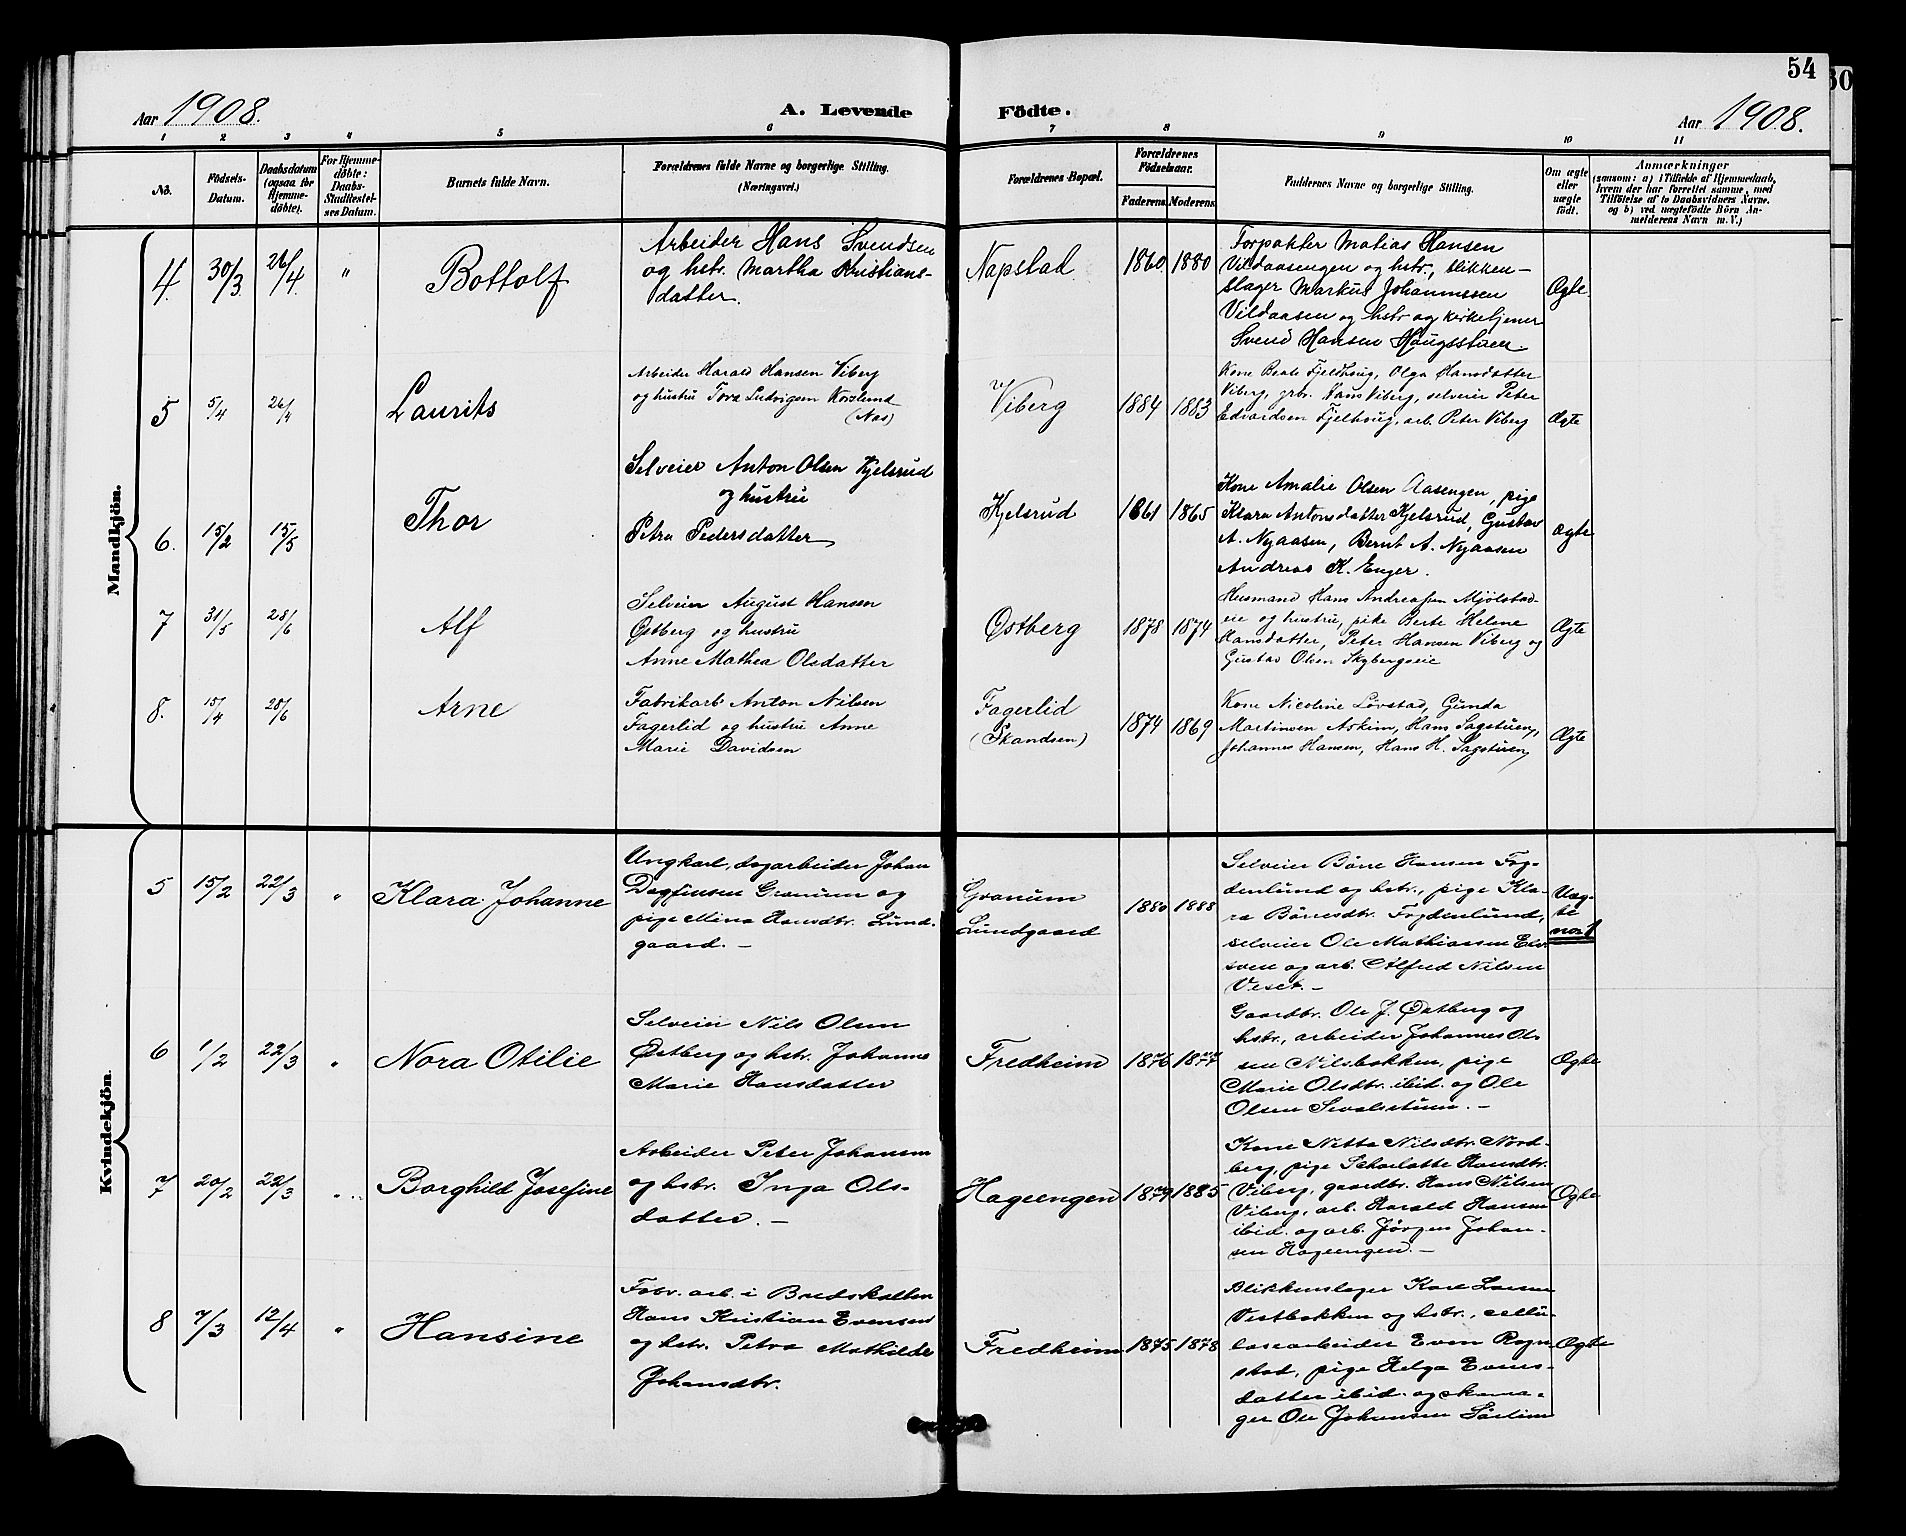 54
Aar 1908.
A. Levende Födte.
Aar 1908.
1 2 3 4 5 6 7 8 9 10 11
No.
Födsels-
Datum.
Daabsdatum
(ogsaa for
Hjemme-
döbte).
For Hjemme-
döbte:
Daabs-
Stadfæstel-
ses Datum.
Barnets fulde Navn.
Forældrenes fulde Navne og borgerlige Stilling.
(Næringsvei.)
Forældrenes Bopæl.
Forældrenes
Födselsaar.
Faderens. Moderens.
Faddernes Navne og borgerlige Stilling.
Om ægte
eller
uægte
født.
Anmærkninger
(saasom: a) i Tilfælde af Hjemmedaab,
hvem der har forrettet samme, med
Tilföielse af to Daabsvidners Navne.
og b) ved uægtefödte Börn An-
melderens Navn m. V.)
Mandkjön.
4. 30/3 26/4 "
Bottolf
Arbeider Hans Svendsen
og hstr. Martha Kristians-
datter.
Napstad 1860 1880
Forpakter Matias Hansen
Vildaasengen og hstr., blikken-
slager Markus Johannssen
Vildaasen og hstr og kirketjener
Svend Hansen Haugsstuen.
Ægte.
5 5/4 26/4
Laurits
Arbeider Harald Hansen Viberg
og hustru Tora Ludvigsen Korslund
(Aas)
Viberg 1884 1883
Kone Beate Fjeldhoug, Olga Hansdatter
Viberg, grbr. Hans Viberg, selveier Peter
Edvardsen Fjelhoug, arb. Peter Viberg
Ægte
6. 15/2 15/5
Thor
Selveier Anton Olsen Kjelsrud
og hustru
Petra Pedersdatter
Kjelsrud 1861 1865
Kone Amalie Olsen Aasengen, pige
Klara Antonsdatter Kjelsrud, Gustav
A. Nyaasen, Bernt A. Nyaasen
Andreas K. Enger.
Ægte
7 31/5 28/6
Alf
Selveier August Hansen
Østberg og hustru
Anne Mathea Olsdatter
Østberg 1878 1874
Husmand Hans Andreassen Mjölstad-
eie og hustru, pike Berte Helene
Hansdatter, Peter Hansen Viberg og
Gustav Olsen Skybergseie
Ægte
8. 15/4 28/6
Arne
Fabrikarb Anton Nilsen
Fagerlid og hustru Anne
Marie Davidsen
Fagerlid
(Skandsen)
1874 1869
Kone Nicoline Lövstad, Gunda
Martinsen Askim, Hans Sagstuen,
Johannes Hansen, Hans H. Sagstuen
Ægte
Kvindekjön.
5 15/2 22/3 "
Klara Johanne
Ungkarl, dagarbeider Johan
Dagfinsen Granum og
pige Mina Hansdtr. Lund-
gaard. -
Granum
Lundgaard
1880 1888
Selveier Börre Hansen Fog-
denlund og hstr., pige Kla-
ra Börresdtr. Fogdenlund,
selveier Ole Mathiassen
og arb. Alfred Nilsen
Veset. -
Uæg-
te
no. 1
6 1/2 22/3 "
Nora Otilie
Selveier Nils Olsen
Østberg og hstr. Johanne
Marie Hansdatter
Fredheim 1876 1877
Gaardbr. Ole J. Østberg og
hstr., arbeider Johannes Ol-
sen Nilsbakken, pige
Marie Olsdtr. ibid. og Ole
Olsen -
Ægte
7 20/2 22/3 "
Borghild Josefine
Arbeider Peter Johansen
og hstr. Inga Ols-
datter. -
Hageengen 1879 1885
Kone Netta Nilsdtr. Nord-
berg, pige Scharlotte Hansdtr.
Viberg, gaardbr. Hans Nilsen
Viberg, arb. Harald Hansen
ibid. og arb. Jørgen Johan-
sen Hageengen. -
Ægte
8 7/3 12/4 "
Hansine
Fabr. arb. i
Hans Kristian Evensen
og hstr. Petra Mathilde
Johansdtr.
Fredheim 1875 1878
Blikkenslager Karl Larsen
Vestbakken og hstr., cellu-
losearbeider Even Rogn-
stad, pige Helga Evens-
datter ibid. og skoma-
ger Ole Johansen
Ægte